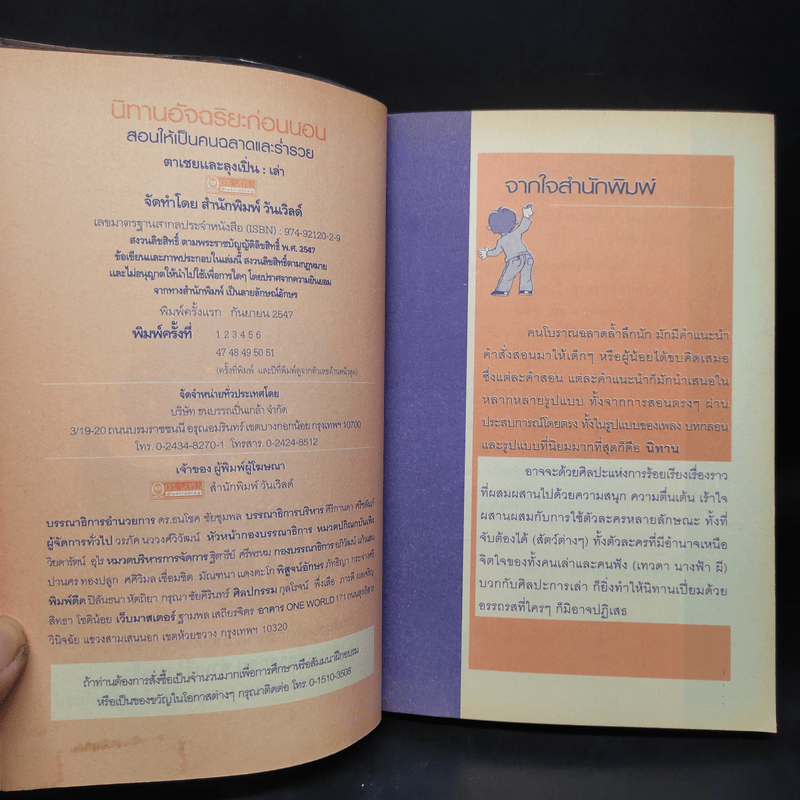 นิทานอัจฉริยะก่อนนอน
สอนให้เป็นคนฉลาดและร่ำรวย
ตาเชยและลุงเปิ่น : เล่า
จัดทำโดย สำนักพิมพ์ วันเวิลด์
เลขมาตรฐานสากลประจำหนังสือ (ISBN) : 974-92120-2-9
สงวนลิขสิทธิ์ ตามพระราชบัญญัติลิขสิทธิ์ พ.ศ. 2547
ข้อเขียนและภาพประกอบในเล่มนี้ สงวนลิขสิทธิ์ตามกฎหมาย
และไม่อนุญาตให้นำไปใช้เพื่อการใดๆ โดยปราศจากความยินยอม
จากทางสำนักพิมพ์ เป็นลายลักษณ์อักษร
พิมพ์ครั้งแรก กันยายน 2547
พิมพ์ครั้งที่ 1 2 3 4 5 6
47 48 49 50 51
(ครั้งที่พิมพ์ และปีที่พิมพ์ดูจากตัวเลขด้านหน้าสุด)
จัดจำหน่ายทั่วประเทศโดย
บริษัท ธนบรรณปิ่นเกล้า จำกัด
3/19-20 ถนนบรมราชชนนี อรุณอมรินทร์ เขตบางกอกน้อย กรุงเทพฯ 10700
โทร. 0-2434-8270-1 โทรสาร. 0-2424-8512
เจ้าของ ผู้พิมพ์ผู้โฆษณา
สำนักพิมพ์ วันเวิลด์
บรรณาธิการอำนวยการ ดร.ธนโชค ชัยชุมพล บรรณาธิการบริหาร ศิริกานดา
ผู้จัดการทั่วไป วรภัค นววงศ์วิวัฒน์ หัวหน้ากองบรรณาธิการ หมวดปกิณกบันเทิง
วิยดารัตน์ อุไร หมวดบริหารการจัดการ ฐิตารีย์ ศรีพรหม กองบรรณาธิการ อภิวัฒน์
ปานศร ทองปลูก ศศิวิมล เชื่อมชิต มัณฑนา แดงตะโก พิสูจน์อักษร ภัทธิญา
พิมพ์ดีด ปิลันธนา หัตถิยา กรุณา ชัยคีรินทร์ ศิลปกรรม กุลโรจน์ พึ่งเสือ ภารดี
สิทธา โชติน้อย เว็บมาสเตอร์ ฐามพล เสถียรจิตร อาคาร ONE WORLD 171 ถนนสุทธิสาร
วินิจฉัย แขวงสามเสนนอก เขตห้วยขวาง กรุงเทพฯ 10320
ถ้าท่านต้องการสั่งซื้อเป็นจำนวนมากเพื่อการศึกษาหรือสัมมนาฝึกอบรม
หรือเป็นของขวัญในโอกาสต่างๆ กรุณาติดต่อ โทร. 0-1510-3508
จากใจสำนักพิมพ์
คนโบราณฉลาดล้ำลึกนัก มักมีคำแนะนำ
คำสั่งสอนมาให้เด็กๆ หรือผู้น้อยได้ขบคิดเสมอ
ซึ่งแต่ละคำสอน แต่ละคำแนะนำก็มักนำเสนอใน
หลากหลายรูปแบบ ทั้งจากการสอนตรงๆ ผ่าน
ประสบการณ์โดยตรง ทั้งในรูปแบบของเพลง บทกลอน
และรูปแบบที่นิยมมากที่สุดก็คือ นิทาน
อาจจะด้วยศิลปะแห่งการร้อยเรียงเรื่องราว
ที่ผสมผสานไปด้วยความสนุก ความตื่นเต้น เร้าใจ
ผสานผสมกับการใช้ตัวละครหลายลักษณะ ทั้งที่
จับต้องได้ (สัตว์ต่างๆ) ทั้งตัวละครที่มีอำนาจเหนือ
จิตใจของทั้งคนเล่าและคนฟัง (เทวดา นางฟ้า ผี)
บวกกับศิลปะการเล่า ก็ยิ่งทำให้นิทานเปี่ยมด้วย
อรรถรสที่ใครๆ ก็มิอาจปฏิเสธ